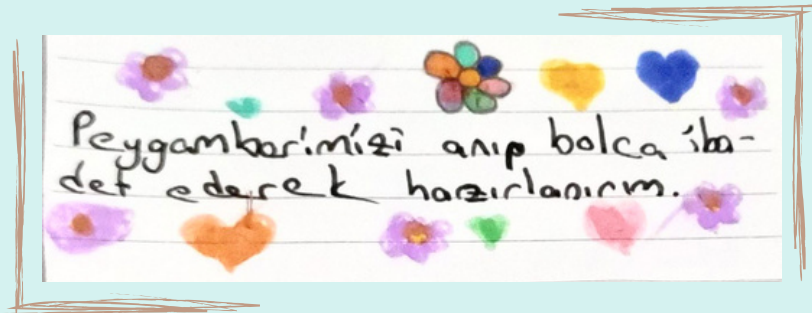 Peygamberimizi anıp bolca iba-
det ederek hazırlanırım.